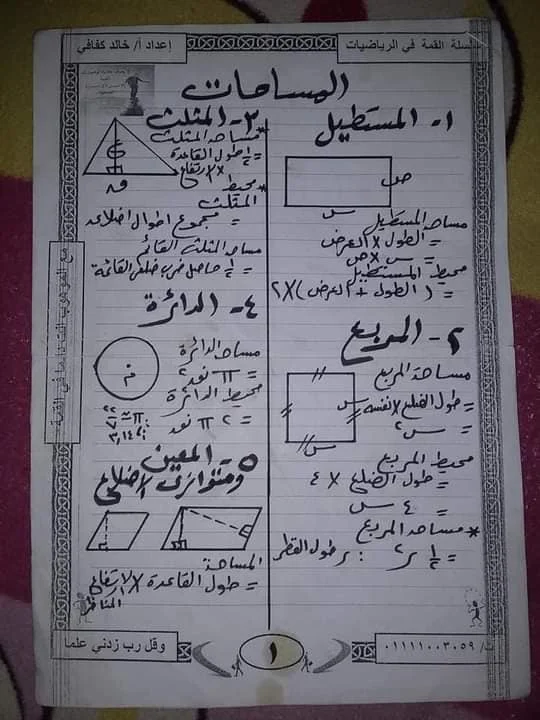 سلسلة القمة في الرياضيات
إعداد أ/ خالد كفافي
المساحات
١- المستطيل
ص
س
مساحة المستطيل
= الطول × العرض
= س × ص
محيط المستطيل
= (الطول + العرض) × ٢
٢- المربع
مساحة المربع
= طول الضلع × نفسه
= س٢
س
س
محيط المربع
= طول الضلع × ٤
= ٤ س
* مساحة المربع
= ١/٢ ر٢ : ر طول القطر
٣- المثلث
* مساحة المثلث
= ١/٢ طول القاعدة
× الارتفاع
ع
ق
* محيط
المثلث
= مجموع أطوال اضلاعه
مساحة المثلث القائم
= ١/٢ حاصل ضرب ضلعى القائمة
٤- الدائرة
م
مساحة الدائرة
= π نق٢
محيط الدائرة
= ٢ π نق
π = ٢٢/٧
٣,١٤
٥- المعين
ومتوازى الاضلاع
المساحة
= طول القاعدة × الارتفاع
المناظر
وقل رب زدني علما
١
ت/ ٠١١١١٠٠٣٠٥٩